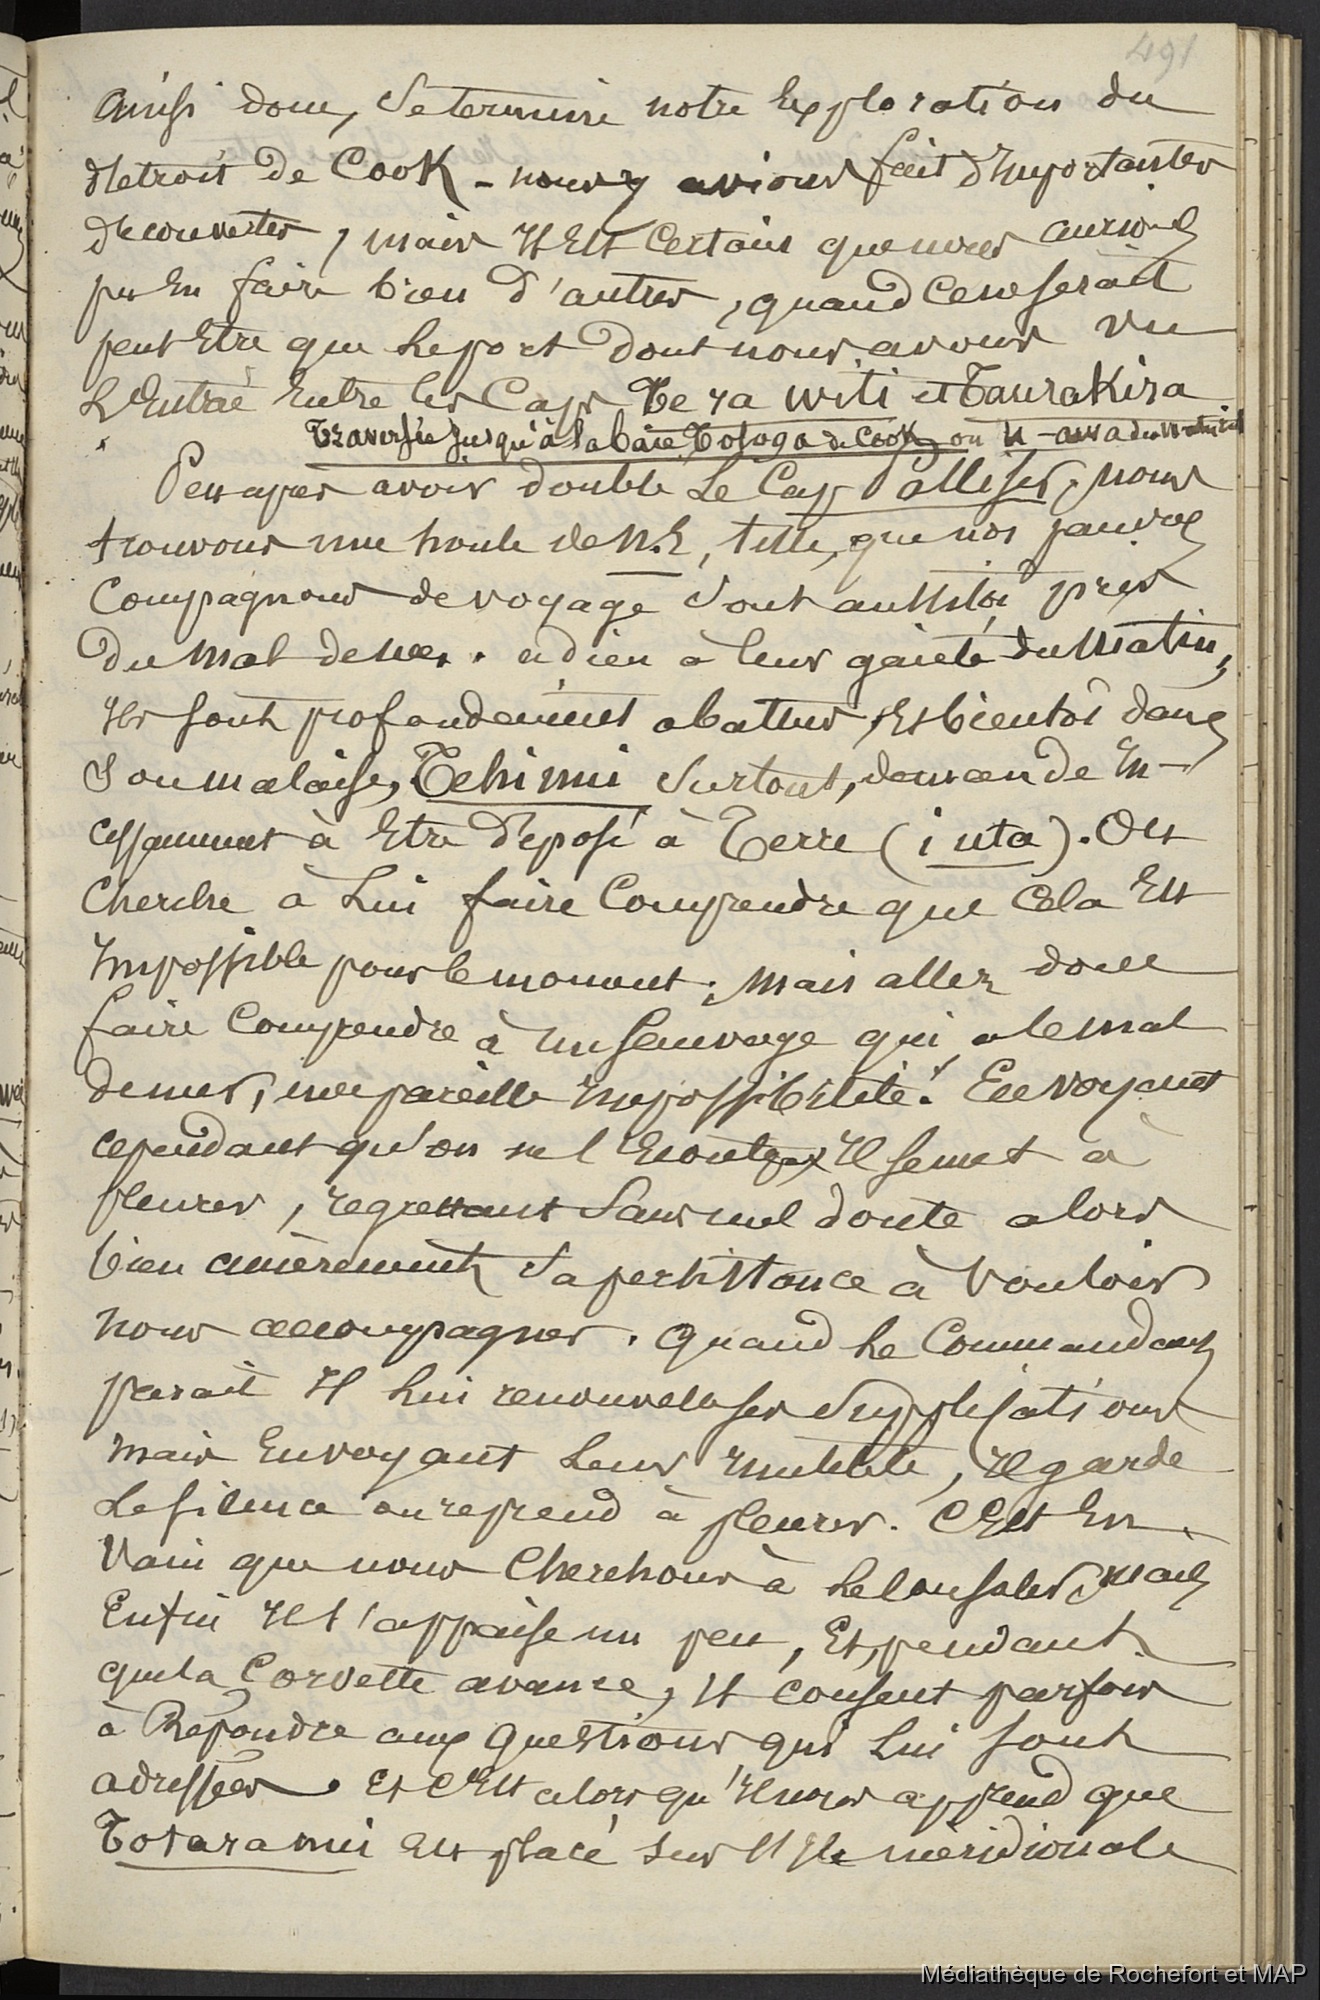 491
Ainsi donc, Se termine notre Exploration du
détroit de Cook - nous y avions fait d'Importantes
découvertes, mais Il Est Certain que nous aurions
pu En faire bien d'autres, quand ce ne serait
peut Etre que Le port dont nous avons vu
L'Entrée Entre les Caps Te ra witi et Taurakira
Traversée jusqu'à la baie Tologa de Cook, ou
Peu apres avoir doublé Le Cap Palliser, nous
trouvons une houle de N.E, telle, que nos pauvres
Compagnons de voyage Sont aussitôt pris
du Mal de mer. adieu à leur gaieté du Matin,
Ils sont profondement abattus, Et bientôt dans
Son malaise, Tehi nui Surtout, demande In-
cessamment à Etre déposé à Terre (i uta). On
Cherche à Lui faire Comprendre que Cela Est
Impossible pour le moment; Mais allez donc
faire Comprendre à un Sauvage qui a le mal
de mer, une pareille Impossibilité! En voyant
cependant qu'on ne l'Ecoute pas Il se met à
pleurer, regrettant Sans nul doute alors
bien amèrement Sa persistance à Vouloir
nous accompagner. Quand Le Commandant
parait Il Lui renouvela ses Supplications
Mais En voyant Leur Inutilité, Il garde
Le silence ou reprend à pleurer. C'Est En
Vain que nous Cherchons à Le Consoler, Mais
Enfin Il s'appaise un peu, Et, pendant
que la Corvette avance, Il consent parfois
à Répondre aux Questions qui Lui sont
adressées. Et C'Est alors qu'Il nous apprend que
Totara nui Est placé sur l'Ile méridionale
Médiathèque de Rochefort et MAP